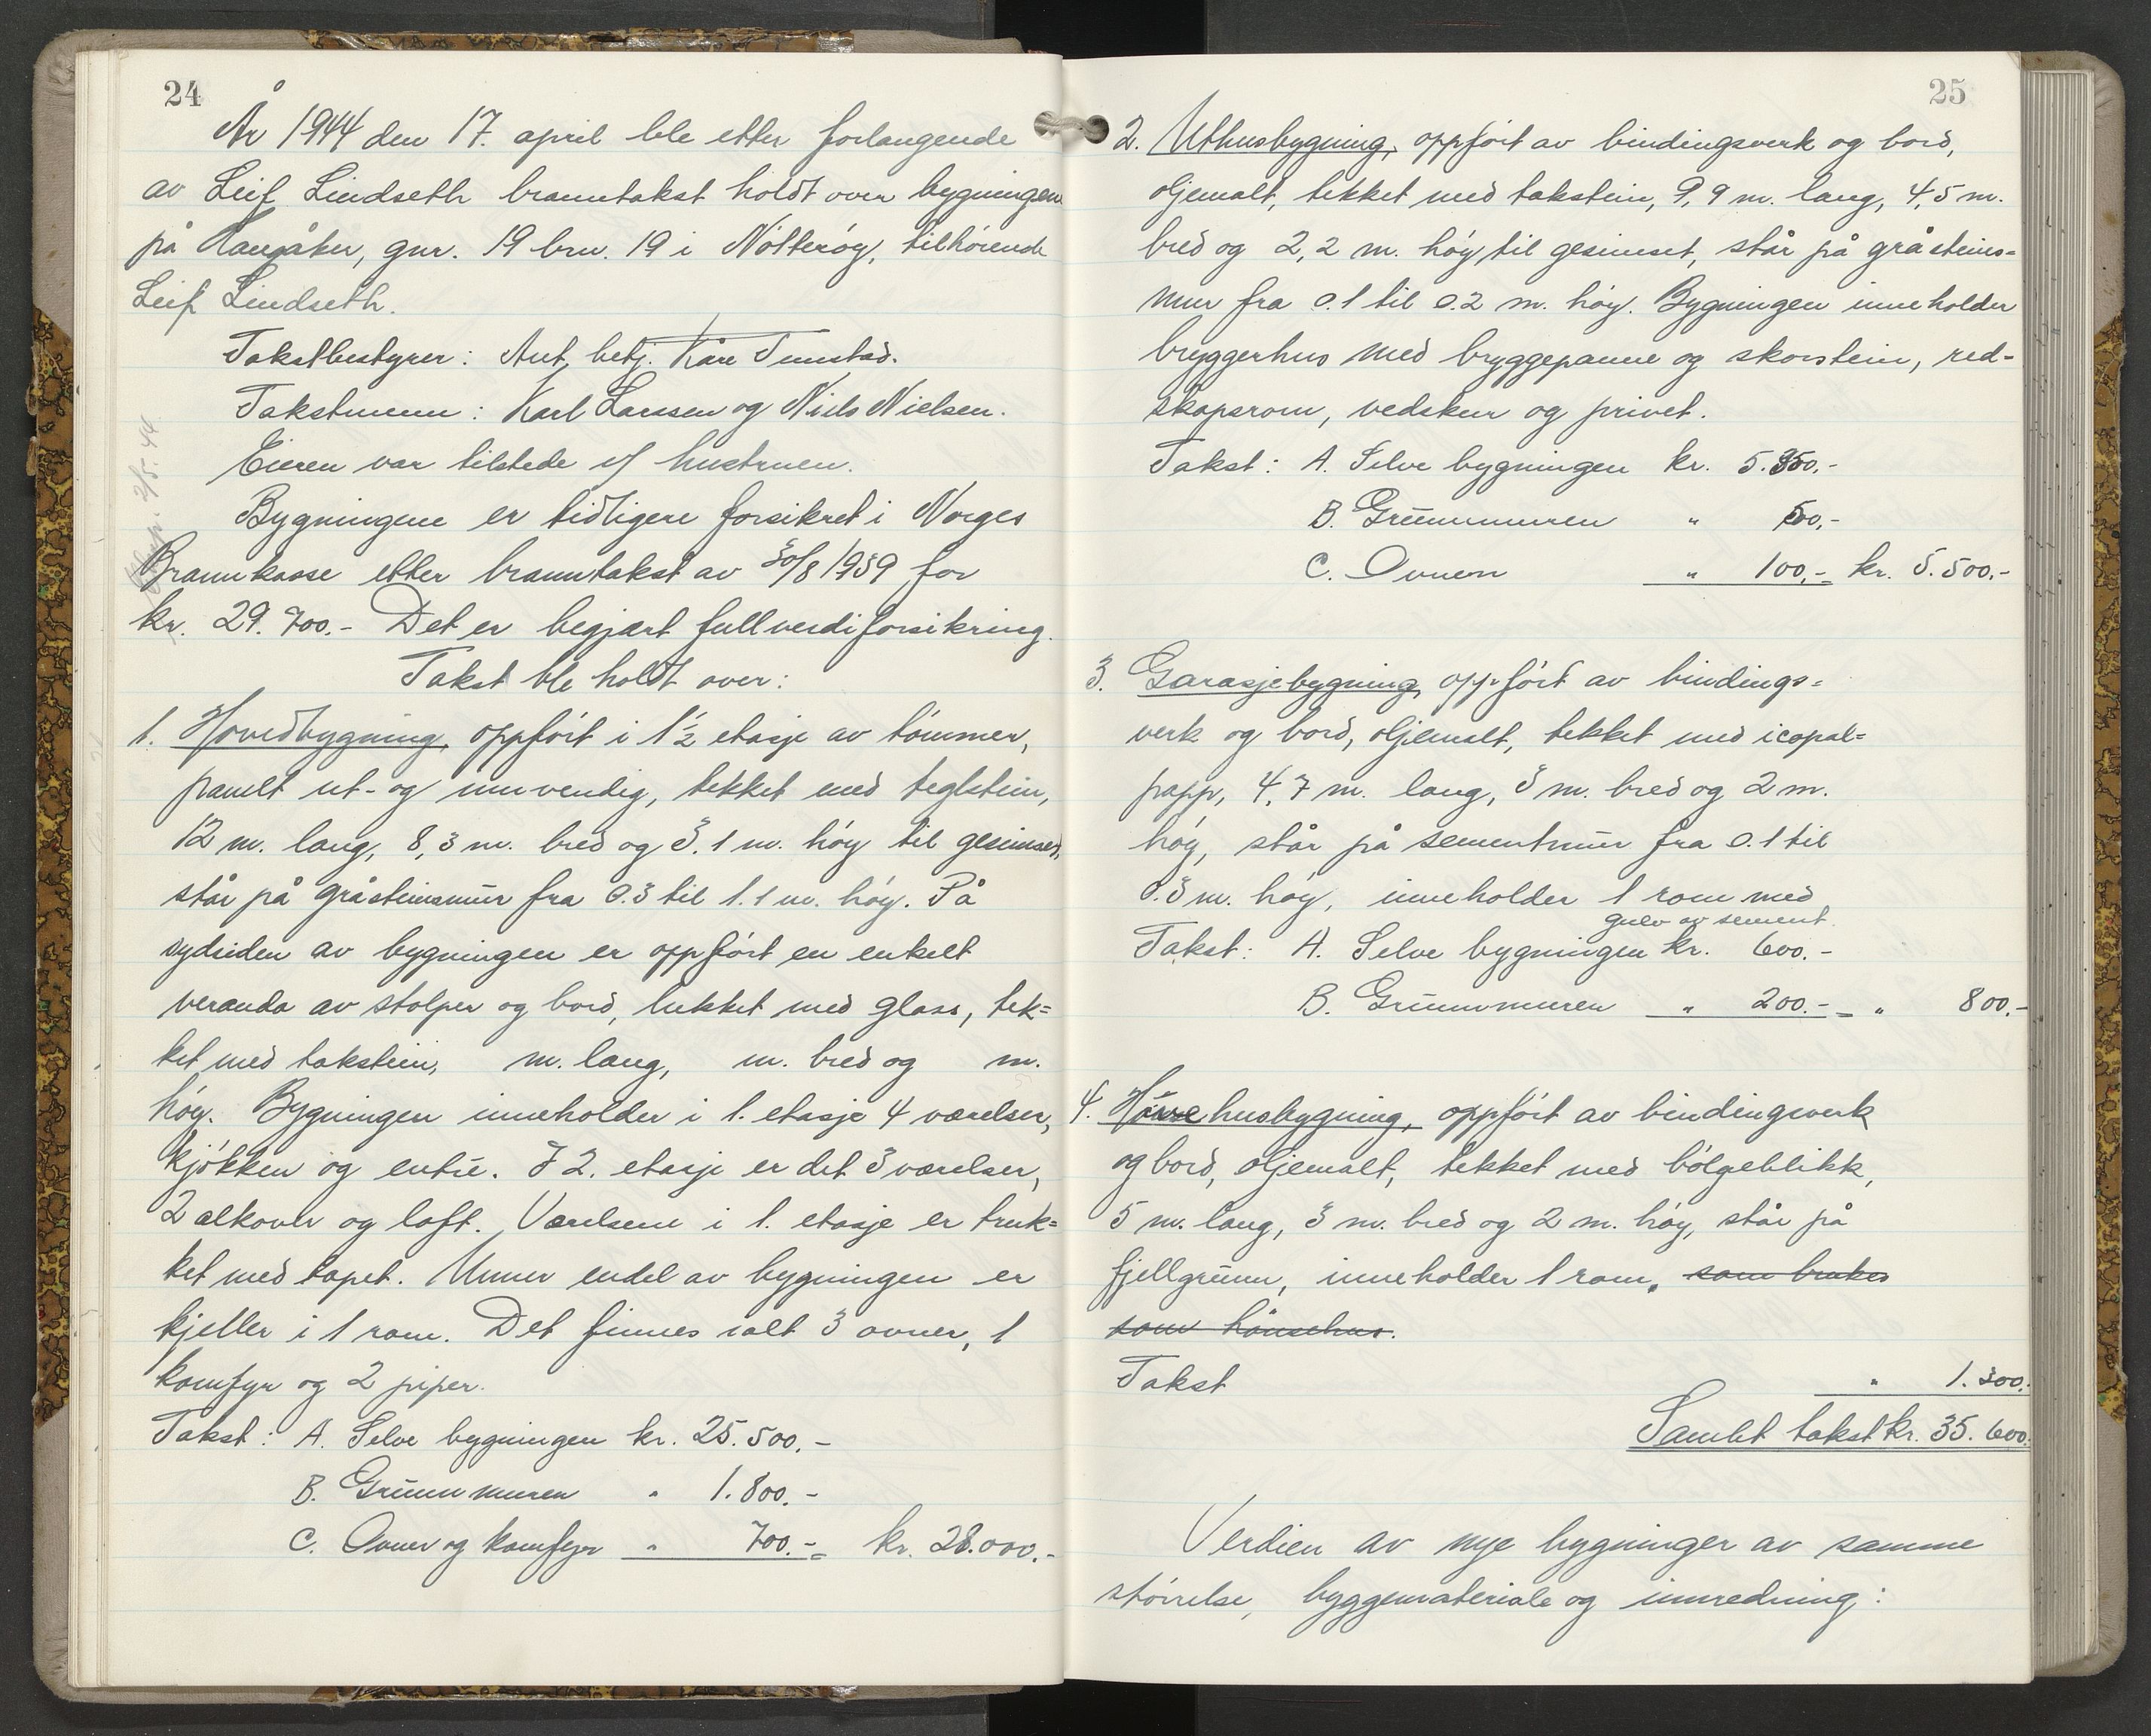 24
År 1944 den 17. april ble etter forlangende
av Leif Lindseth branntakst holdt over bygningen
på Haugåker, gnr. 19 brn. 19 i Nötteröy, tilhörende
Leif Lindseth.
Takstbestyrer: Aut. betj. Kåre Tumstad.
Takstmenn: Karl Larssen og Niels Nielsen.
Eieren var tilstede v/ hustruen.
Bygningene er tidligere forsikret i Norges
Brannkasse etter branntakst av 30/8 1939 for
kr. 29.700.- Det er begjært fullverdiforsikring.
Takst ble holdt over:
1. Hovedbygning, oppfört i 1½ etasje av tömmer,
panelt ut- og innvendig, tekket med teglstein,
12 m. lang, 8,3 m. bred og 3.1 m. höy til gesimsen,
står på gråsteinsmur fra 0.3 til 1.1 m. höy. På
sydsiden av bygningen er oppfört en enkelt
veranda av stolper og bord, lukket med glass, tek=
ket med takstein, m. lang, m. bred og m.
höy. Bygningen inneholder i 1. etasje 4 værelser,
kjökken og entré. I 2. etasje er det 3 værelser,
2 alkover og loft. Værelsene i 1. etasje er truk=
ket med tapet. Unner endel av bygningen er
kjeller i 1 rom. Det finnes ialt 3 ovner, 1
komfyr og 2 piper.
Takst: A. Selve bygningen kr. 25.500.-
B. Grunnmuren " 1.800.-
C. Ovner og komfyr " 700.- = kr. 28.000.-
25
2. Uthusbygning, oppfört av bindingsverk og bord,
oljemalt, tekket med takstein, 9,9 m. lang, 4,5 m.
bred og 2,2 m. höy til gesimset, står på gråsteins=
mur fra 0.1 til 0.2 m. höy. Bygningen inneholder
bryggerhus med bryggepanne og skorstein, red=
skapsrom, vedskur og privet.
Takst: A. Selve bygningen kr. 5.350.-
B. Grunnmuren " 50.-
C. Ovnen " 100.- = kr. 5.500.-
3. Garasjebygning, oppfört av bindings=
verk og bord, oljemalt, tekket med icopal=
papp, 4,7 m. lang, 3 m. bred og 2 m.
höy, står på sementmur fra 0.1 til
0.3 m. höy, inneholder 1 rom med
gulv av sement.
Takst: A. Selve bygningen kr. 600.-
B. Grunnmuren " 200.- = " 800.-
4. husbygning, oppfört av bindingsverk
og bord, oljemalt, tekket med bölgeblikk,
5 m. lang, 3 m. bred og 2 m. höy, står på
fjellgrunn, inneholder 1 rom, som brukes
som hönsehus.
Takst " 1.300.-
Samlet takst kr. 35.600.-
Verdien av nye bygninger av samme
störrelse, byggemateriale og innredning: